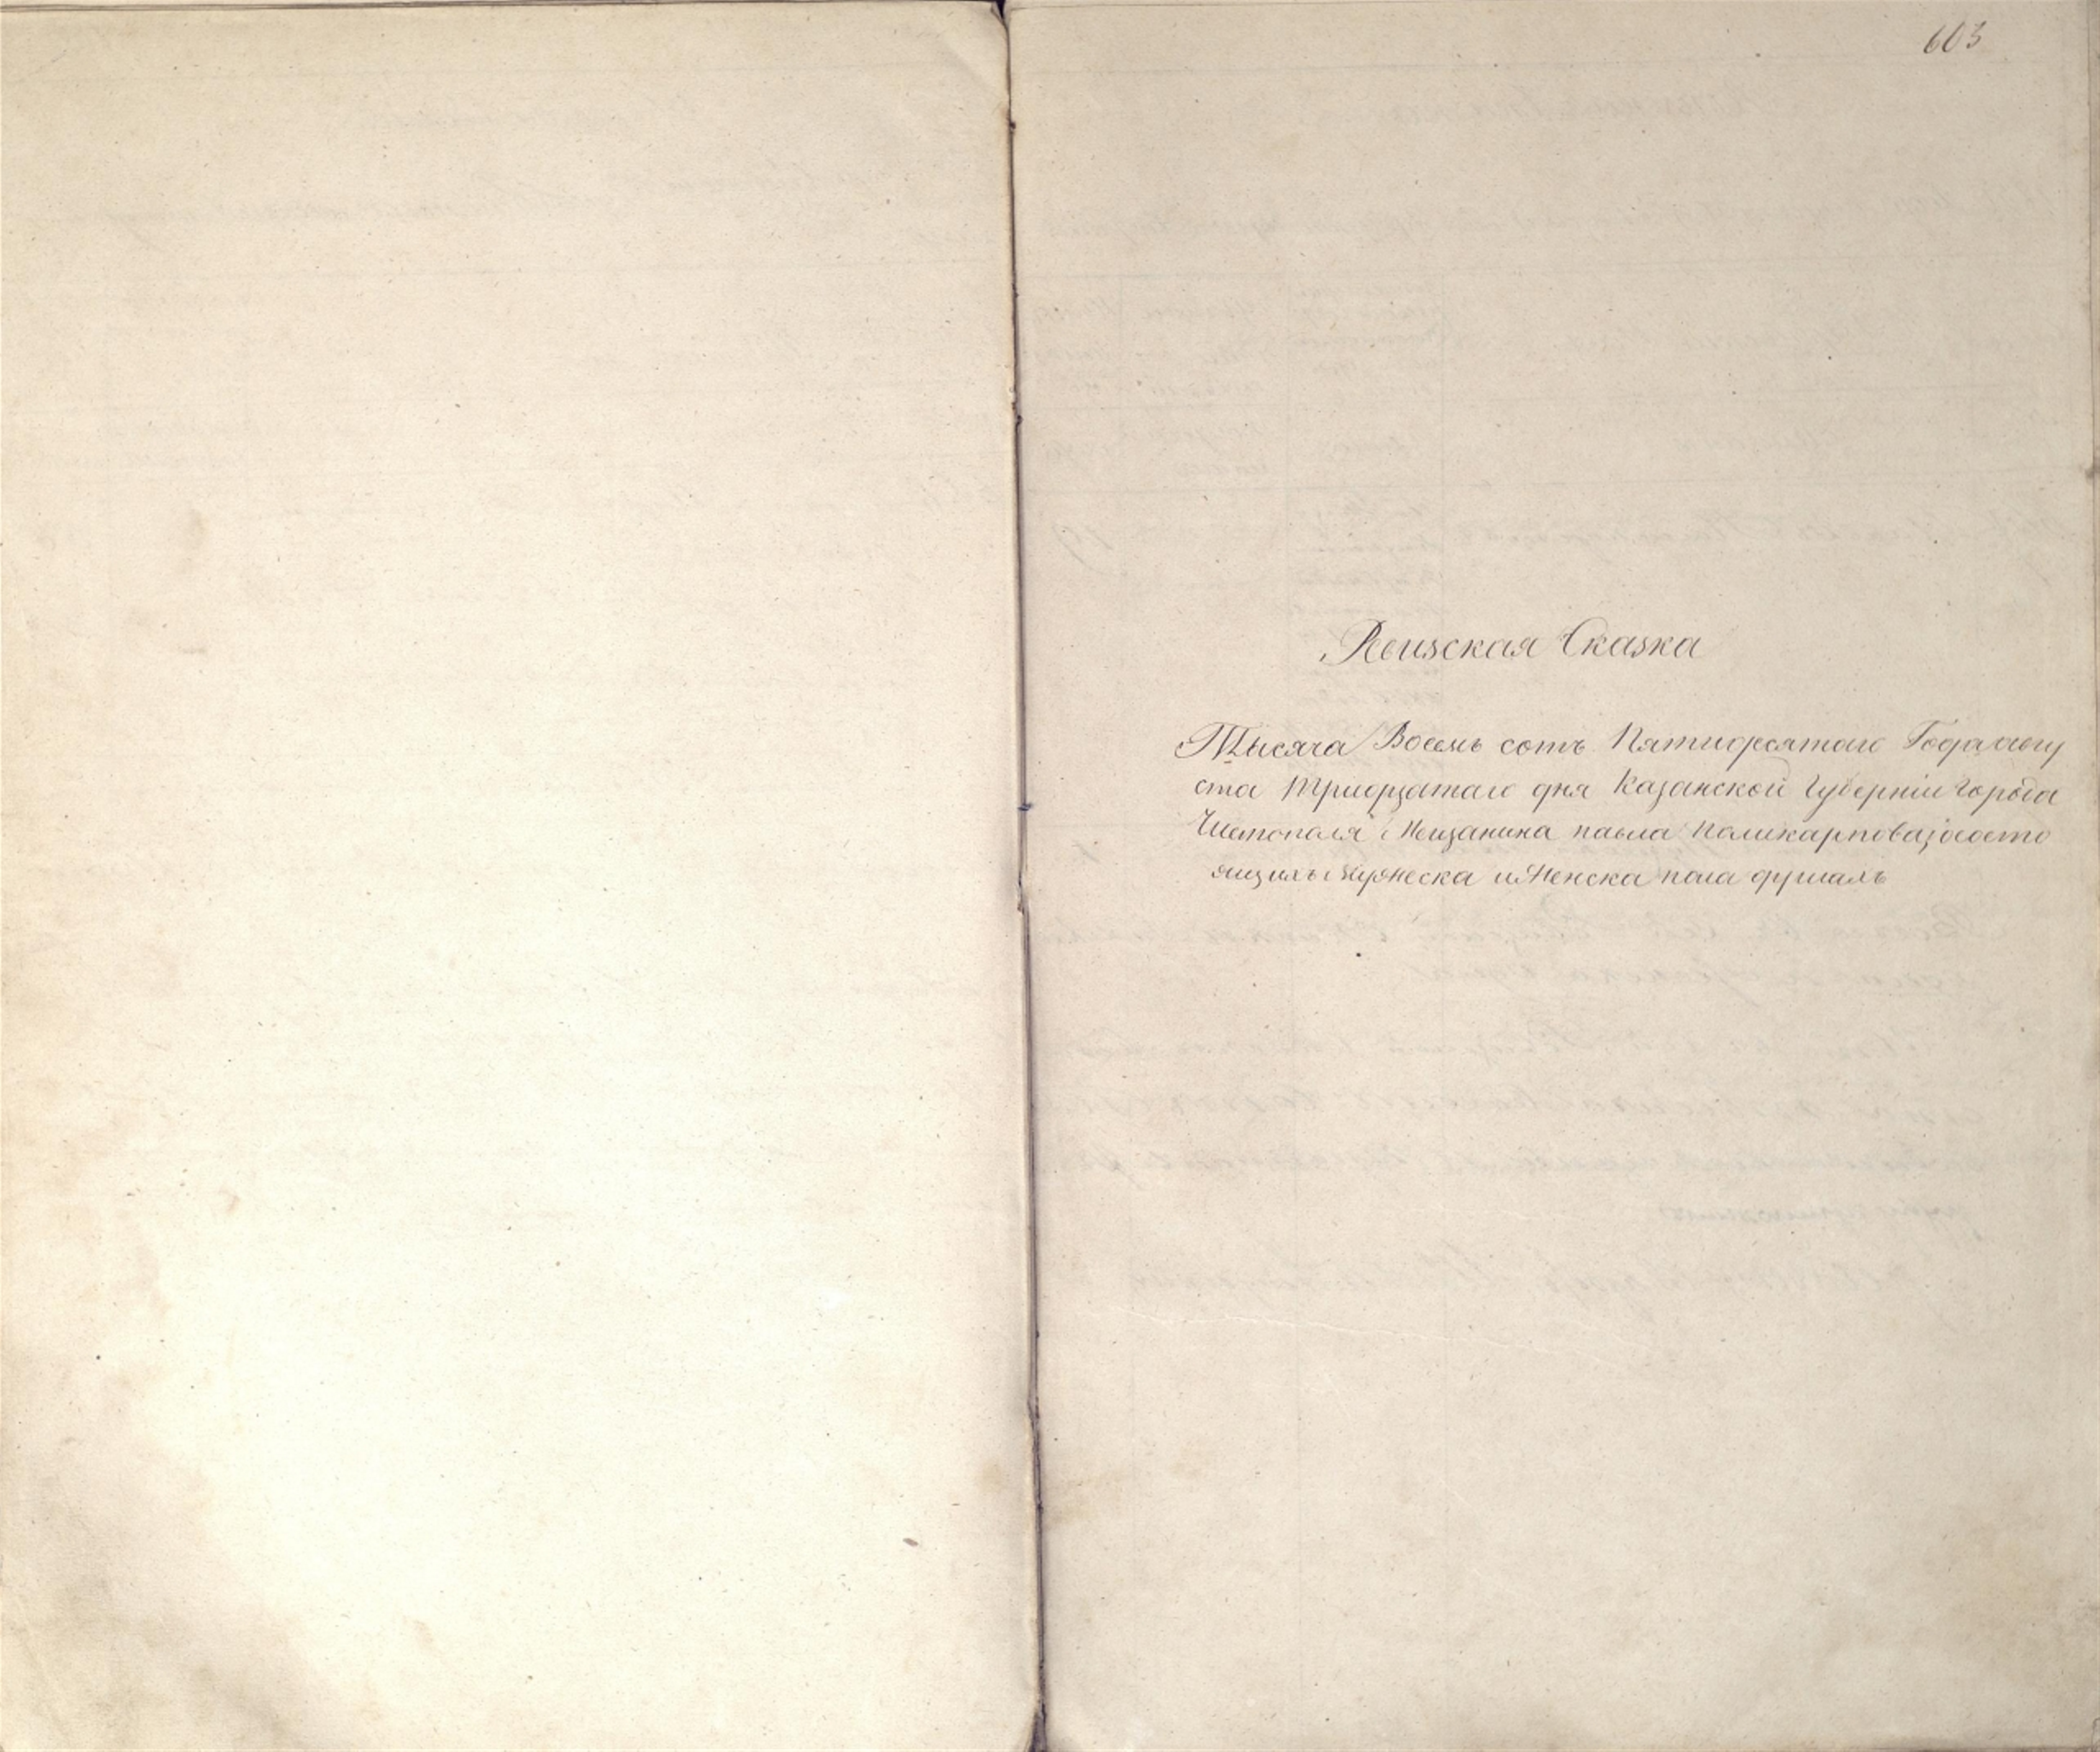 603
Ревизская Сказка
Тысяча Восемь сотъ Пятидесятаго Года авгу
ста тридцатаго дня Казанской Губерніи города
Чистополя Мещанина павла Поликарпова, о состо
ящихъ мужеска и женска пола душахъ